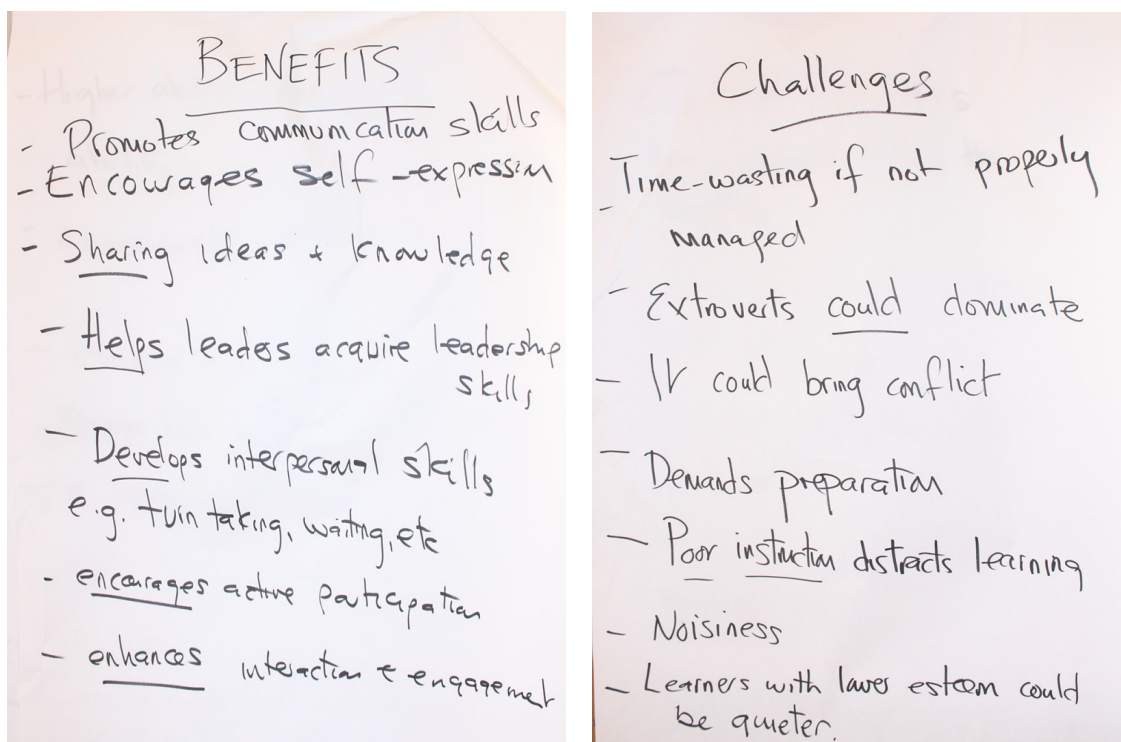 BENEFITS
- Promotes communication skills
- Encourages self-expression
- Sharing ideas + knowledge
- Helps leaders acquire leadership
skills
- Develops interpersonal skills
e.g. turn taking, waiting, etc
- encourages active participation
- enhances interaction & engagement
Challenges
- Time-wasting if not properly
managed
- Extroverts could dominate
- It could bring conflict
- Demands preparation
- Poor instruction distracts learning
- Noisiness
- Learners with lower esteem could
be quieter.